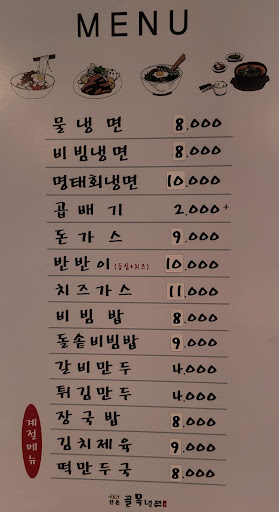 MENU
물냉면 8.000
비빔냉면 8.000
명태회냉면 10.000
곱배기 2.000+
돈가스 9.000
반반이(등심+치즈) 10.000
치즈가스 11.000
비빔밥 8.000
돌솥비빔밥 9.000
갈비만두 4.000
튀김만두 4.000
계절메뉴
장국밥 8.000
김치제육 9.000
떡만두국 8.000
골목냉면